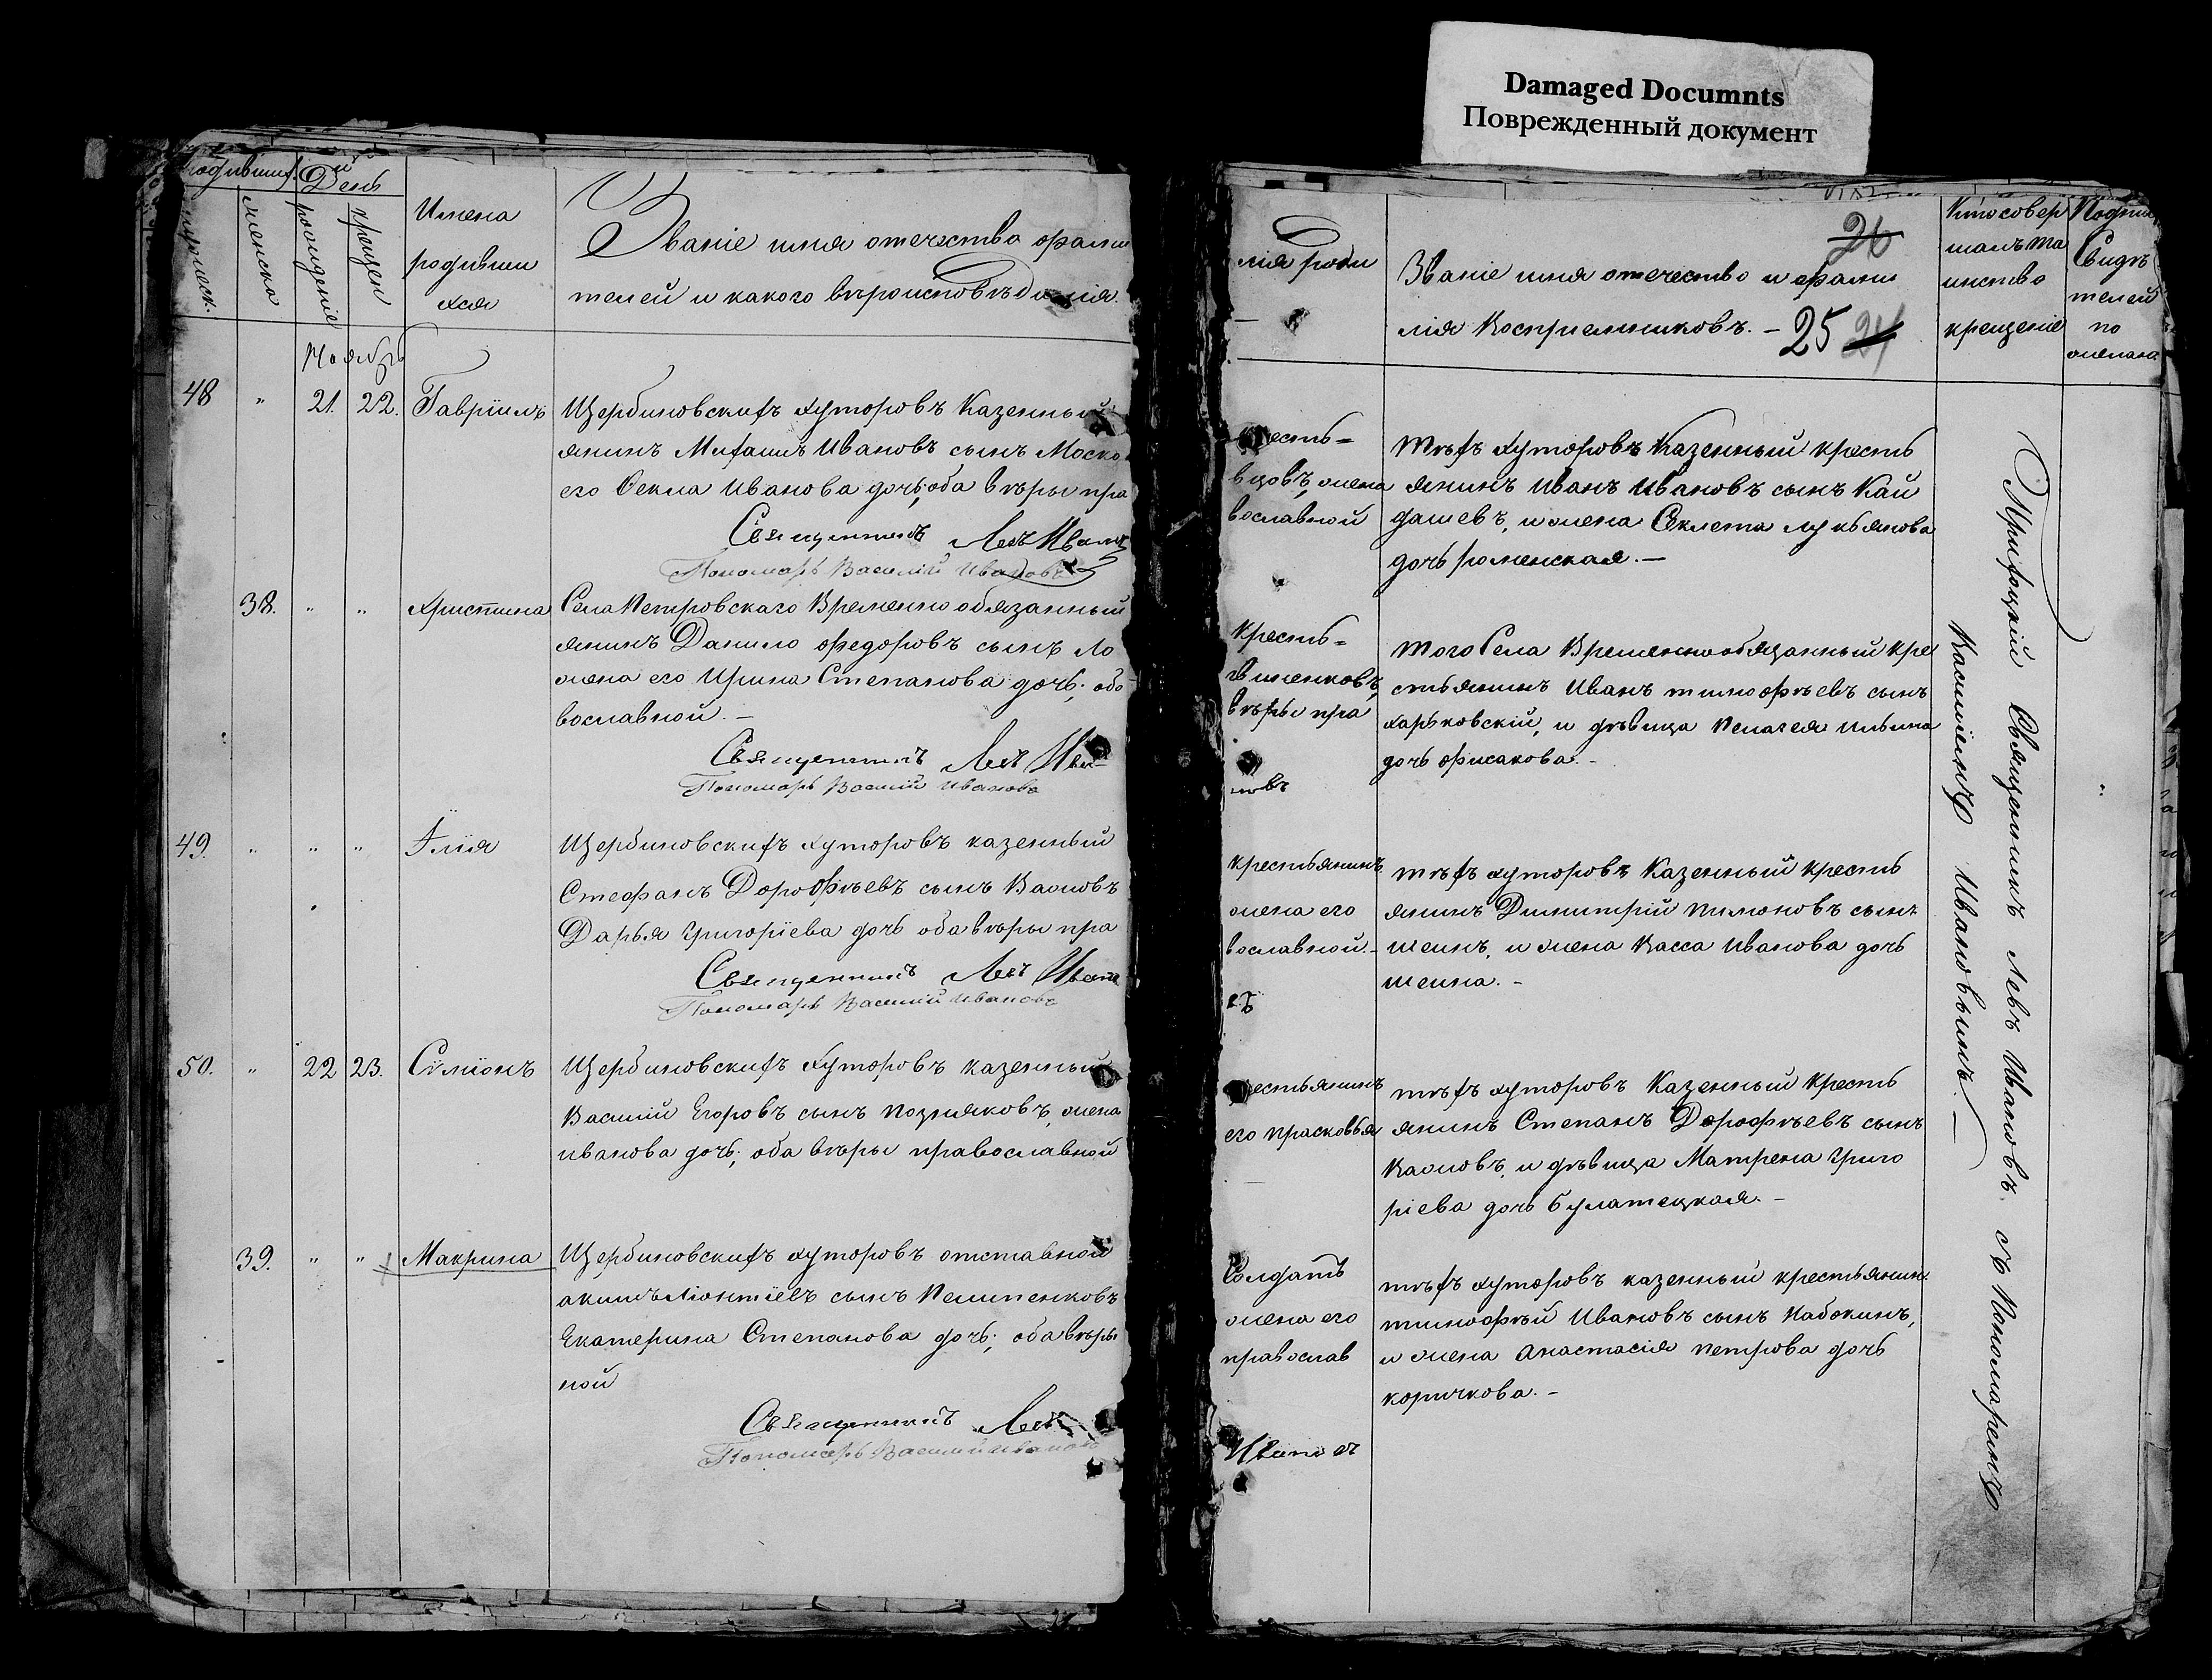 Damaged Documnts
Поврежденный документ
родившиx.
Дени
мужеск.
женска
рожденіе
крещен
Имена
родивши
хся
Званіе имя отечество фами
телей и какого вѣроисповѣданія.
Ноябрь
48 " 21. 22. Гавріилъ
Щербиновскихъ хуторовъ Казенный
янинъ Михаилъ Ивановъ сынъ Моско
его Фекла Иванова дочь; оба вѣры пра
Священникъ Левъ Иванов
Пономарь Василій Ивановъ
38. " " Христина
Села Петровскаго Временно обязанный
янинъ Данило Федоровъ сынъ Ло
жена его Ирина Степанова дочь; оба
вославной. –
Священникъ Левъ Ива
Пономарь Василій Ивановъ
49. " " " Илія
Щербиновскихъ хуторовъ казенный
Стефанъ Дорофѣевъ сынъ
Дарья Григоріева дочь оба вѣры пра
Священникъ Левъ Иван
Пономарь Василій Ивановъ
50. " 22 23. Сѵміонъ
Щербиновскихъ хуторовъ казенный
Василій Егоровъ сынъ Позняковъ, жена
иванова дочь; оба вѣры православной
39. " " Макрина
Щербиновскихъ хуторовъ отставной
акимъ Ліонтіевъ сынъ Пелипенковъ
Екатерина Степанова дочь; оба вѣры
ной
Священникъ Левъ
Пономарь Василій Ивановъ
лія роди
26
Званіе имя отечество и фами
лія Воспріемниковъ. – 25 24
Кто совер
шалъ та
инство
крещеніе
Подпис
Свидѣ
телей
по
желанію
кресть=
вцовъ, жена
вославной
тѣхъ хуторовъ Казенный кресть
янинъ Иванъ Ивановъ сынъ Кай
дашевъ, и жена Феклета лукьянова
дочь роменская. –
кресть=
гвиненковъ,
вѣры пра
новъ
того Села Временнообязанный кре
стьянинъ Иванъ тимофѣевъ сынъ
харьковскій, и дѣвица Пелагея Ильина
дочь Фисакова. –
крестьянинъ
жена его
вославной. –
въ
тѣхъ хуторовъ Казенный кресть
янинъ Димитрій Пимоновъ сынъ
шеинъ, и жена Васса Иванова дочь
шеина. –
рестьянинъ
его прасковья
тѣхъ хуторовъ Казенный кресть
янинъ Степанъ Дорофѣевъ сынъ
и дѣвица Матрена Григо
ріева дочь Булатецкая. –
Солдатъ
жена его
православ
Ивановъ
тѣхъ хуторовъ казенный крестьянин
тимофѣй Ивановъ сынъ Набокинъ,
и жена анастасія петрова дочь
коричкова. –
Приходскій Священникъ Левъ Ивановъ съ Пономаремъ
Василіемъ Ивановымъ. –